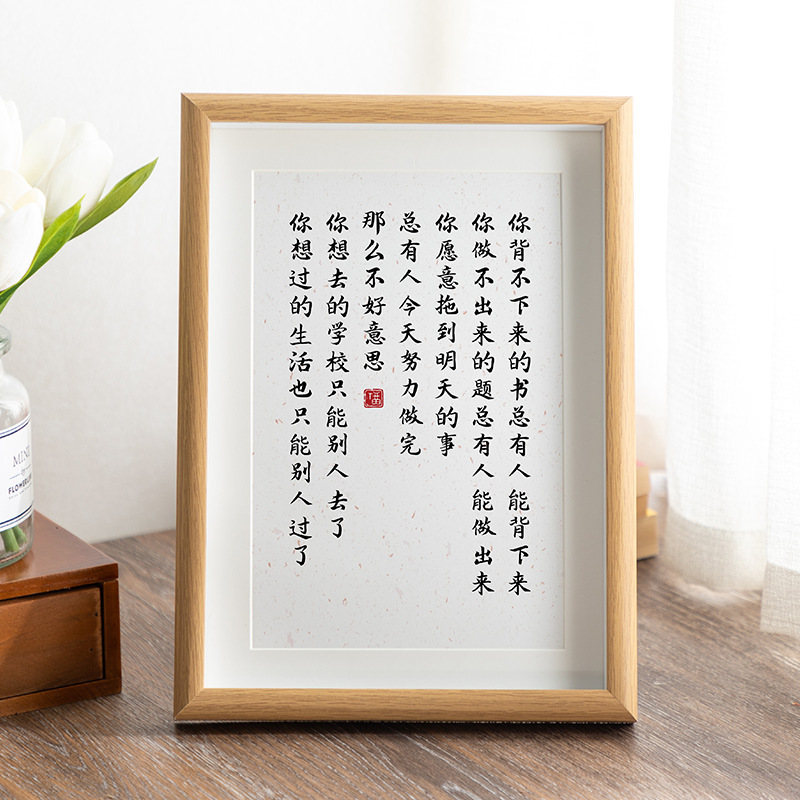 你背不下来的书总有人能背下来
你做不出来的题总有人能做出来
你愿意拖到明天的事
总有人今天努力做完
那么不好意思
你想去的学校只能别人去了
你想过的生活也只能别人过了